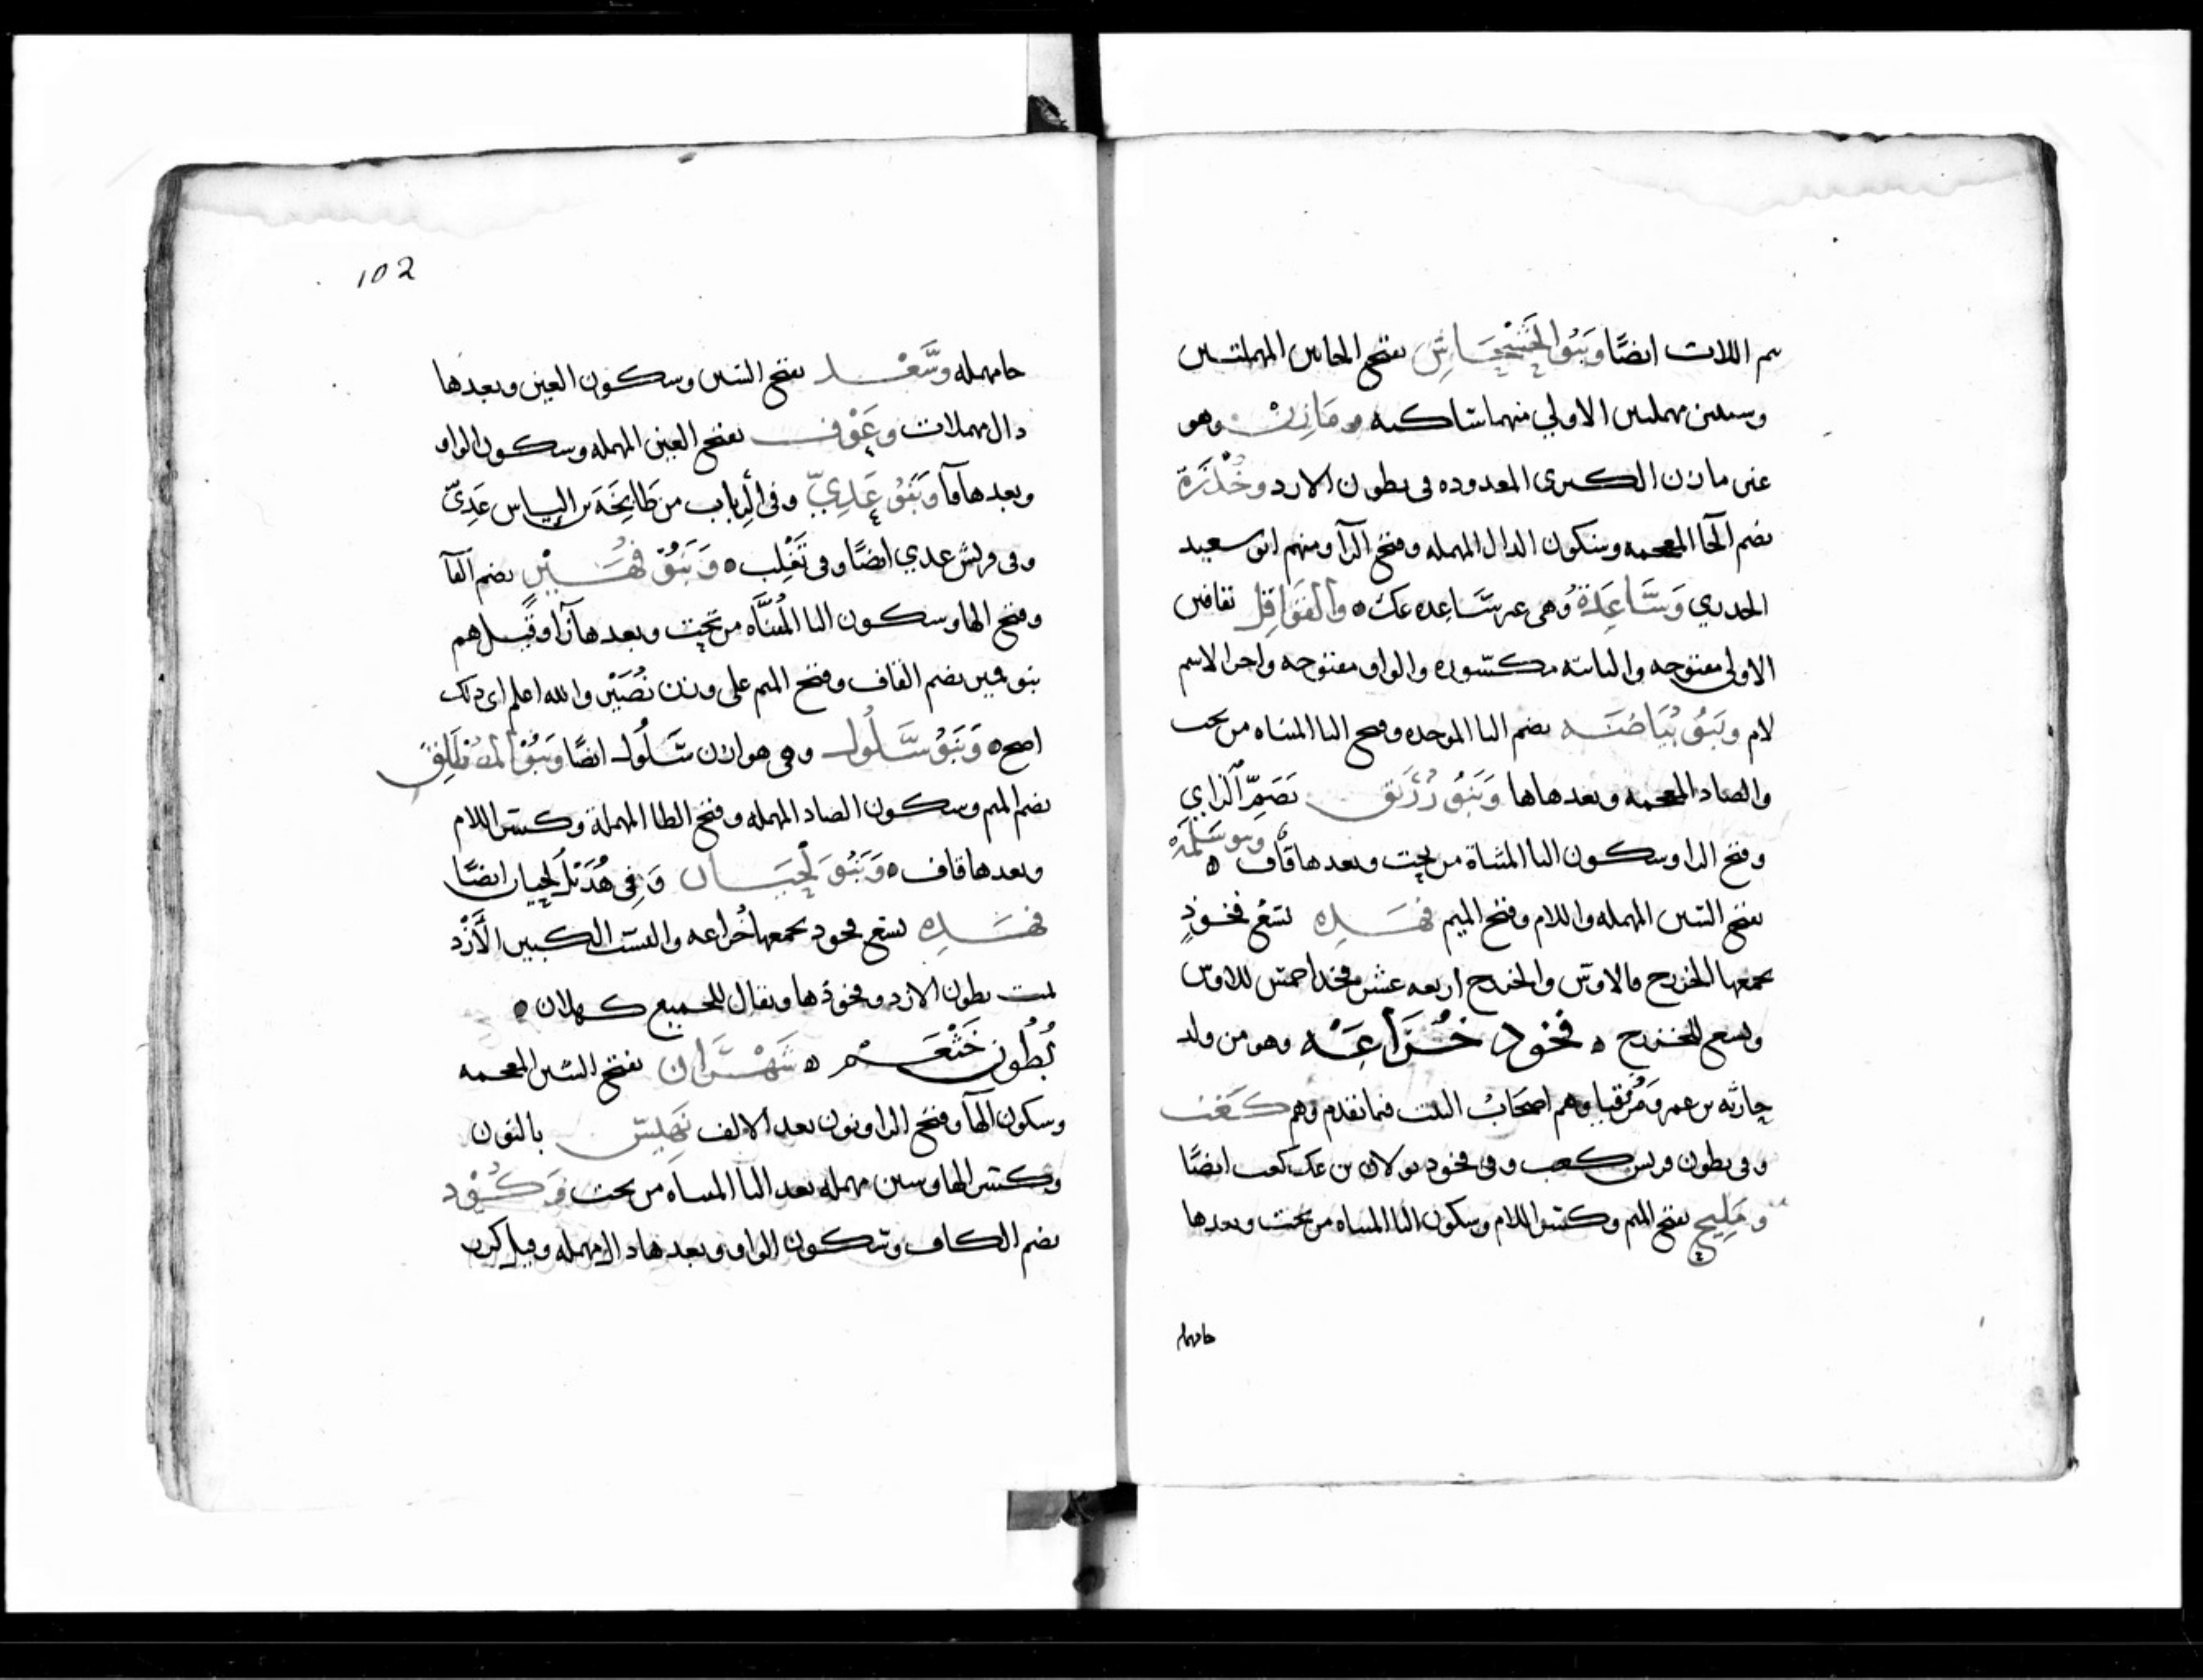 تيم اللات ايضًا وَبَنُو الحَسْحَاسِ بفتح الحاين المهملتين
وسينين مهملتين الاولي منهما ساكنه ومَازِنْ وهو
غير مازن الكبرى المعدوده في بطون الازد وخُدْرَة
بضم الخا المعجمه وسكون الدال المهمله وفتح الرا ومنهم ابو سعيد
الخدري وَسَاعِدَة وهي غير ساعده عك ه والقَوَاقِل بقافين
الاولى مفتوحه والثانيه مكسوره والواو مفتوحه واخر الاسم
لام وبَنُو بُيَاضَه بضم البا الموحده وفتح اليا المثناه من تحت
والضاد المعجمه وبعدها ها وَبَنُو زُرَيق بضمّ الزاي
وفتح الرا وسكون اليا المثناة من تحت وبعدها قاف ه وبنو سَلَمَة
بفتح السين المهمله واللام وفتح الميم فهَذِه تسْع فخوذٍ
يجمعها الخزرج فالاوس والخزرج اربعه عشر فخذا خمس للاوس
وتسع للخزرج ه فخوذ خُزَاعَه وهو من ولد
حارثه بن عمرو مُزَيقيا وهم اصحَابُ البيت فيما تقدم وهم كَعْب
وفي بطون قريش كعب وفي فخوذ بولان بن عك كعب ايضًا
ومَلِيح بفتح الميم وكسر اللام وسكون اليا المثناه من تحت وبعدها
حا مهمله
102
حا مهمله وسَعْد بفتح السين وسكون العين وبعدها
دال مهملات وعَوْف بفتح العين المهمله وسكون الواو
وبعدها فا وَبَنُو عَدِيّ وفي الرِباب من طَابِخَة بن الياس عَدِيّ
وفي قريش عدي ايضًا وفي تَغْلِب ه وَبَنُو فُهَيْر بضم الفا
وفتح الها وسكون اليا المُثنَّاه من تحت وبعدها رَا وقيل هم
بنو قمير بضم القاف وفتح الميم على وزن نُصَيْر والله اعلم اي ذلك
اصح ه وَبَنُو سَلُول وفي هوازن سَلُول ايضًا وَبَنُو المُصْطَلِق
بضم الميم وسكون الصاد المهمله وفتح الطا المهملة وكسر اللام
وبعدها قاف ه وَبَنُو لَحْيَان وَفي هُذَيْل لحيان ايضًا
فهَذِه تسع فخوذ يجمعها خُزاعه والنسب الكبير الأَزْد
تمت بطون الازد وفخوذها ويقال للجميع كهلان ه
بُطُون خَثْعَم ه شَهْرَان بفتح الشين المعجمه
وسكون الها وفتح الرا ونون بعد الالف نَهِيس بالنون
وكسر الها وسين مهمله بعد اليا المثناه من تحت وَكُوْد
بضم الكاف وسكون الواو وبعدها دال مهمله وقيل كرب